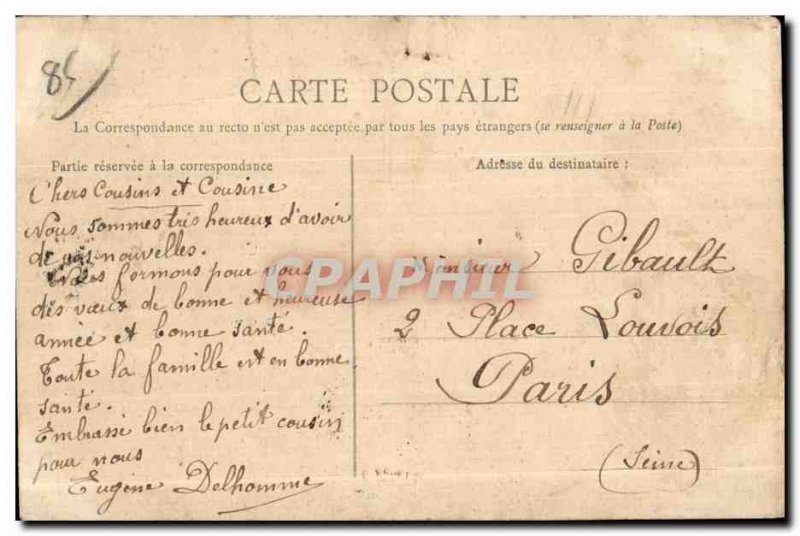 84
CARTE POSTALE
La Correspondance au recto n'est pas acceptée par tous les pays étrangers (se renseigner à la Poste)
Partie réservée à la correspondance
Chers Cousins et Cousine
Nous sommes très heureux d'avoir
de vos nouvelles.
Nous formons pour vous
des vœux de bonne et heureuse
année et bonne santé.
Toute la famille est en bonne
santé.
Embrassé bien le petit cousin
pour nous
Eugène Delhomme
Adresse du destinataire :
Monsieur Gibault
2 Place Louvois
Paris
(Seine)
CPAPHIL